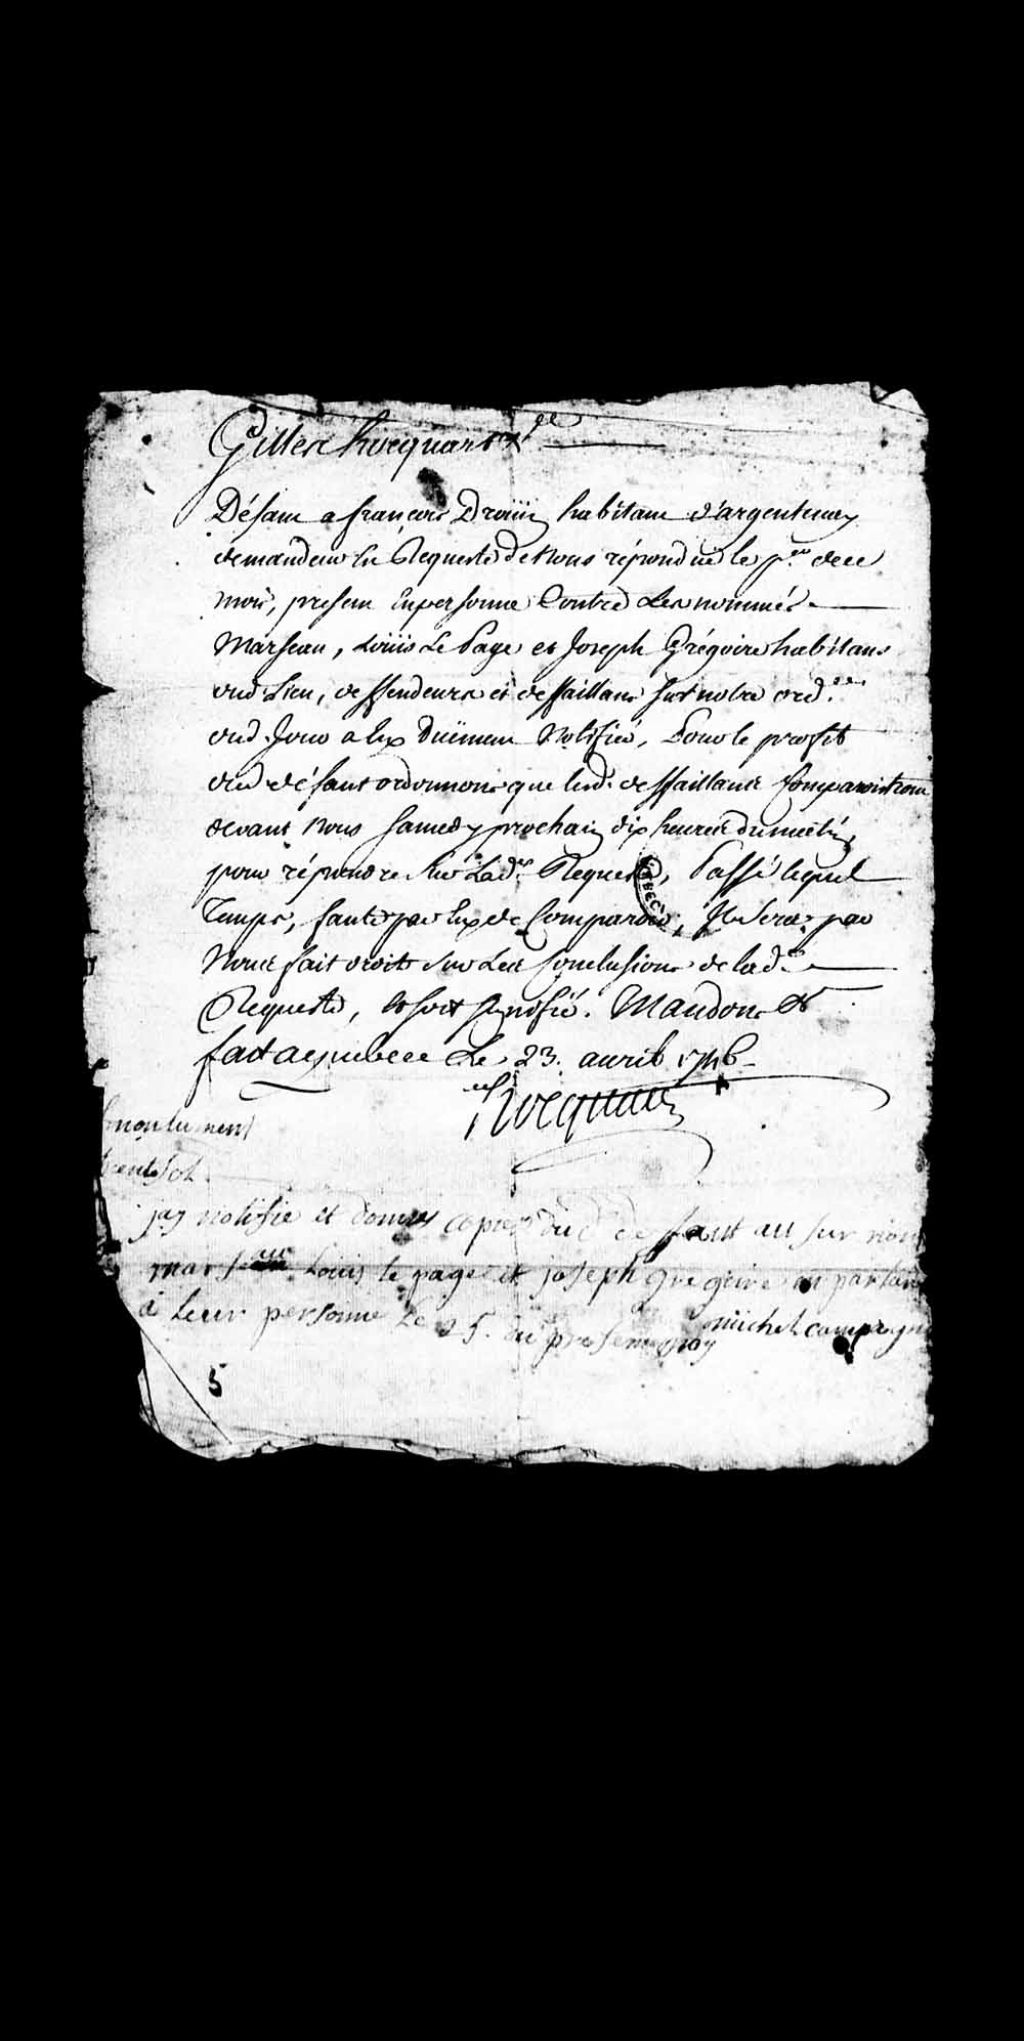 Gilles hocquart &c.
Défaut a françois Drouin habitant d'argentenay
demandeur En Requeste de Nous répondüe le p.er de ce
mois, present En personne Contre Les nommés
Marseau, Loüis Le Page et Joseph Grégoire habitans
dud. Lieu, deffendeurs et deffaillans sur notre ord.ce
dud. Jour a Eux düement Notifiée, Pour le proffit
dud. défaut ordonnons que lesd. deffaillants Comparoistront
devant Nous Samedy prochain dix heures du matin,
pour répondre Sur Lad.e Requeste, Passé lequel
Temps, faute par Eux de Comparoir, Il Sera par
Nous fait droit Sur Les Conclusions de lad.e
Requeste, Et soit signifié. Mandons &
fait a quebec Le 23. avril 1746
Hocquart
QUEBEC
jay notifie et donnes copie du d deffaut au sur nom
marseau Louis le page et joseph gregoire en parlant
a leur personne Le 25. du present moy michel
5